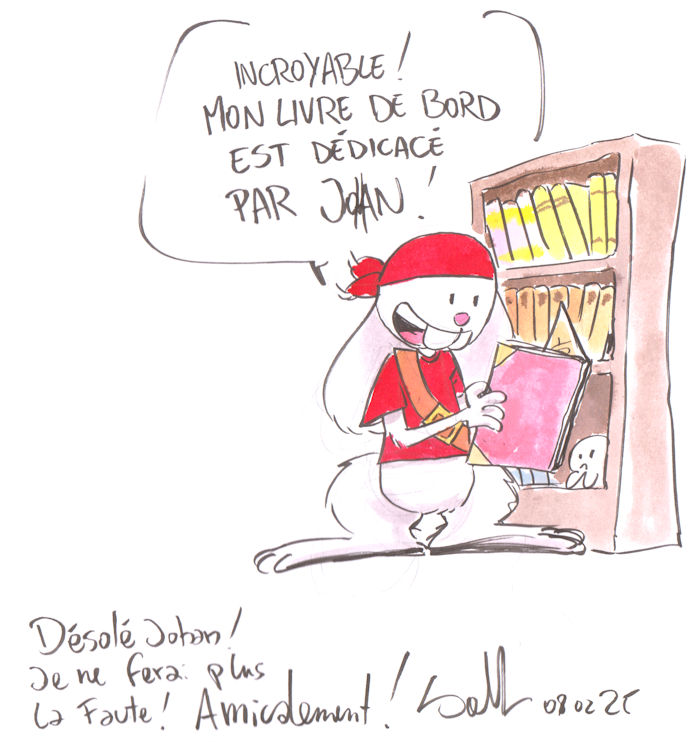 INCROYABLE !
MON LIVRE DE BORD
EST DÉDICACÉ
PAR JOHAN !
Désolé Johan !
Je ne ferai plus
la Faute ! Amicalement !